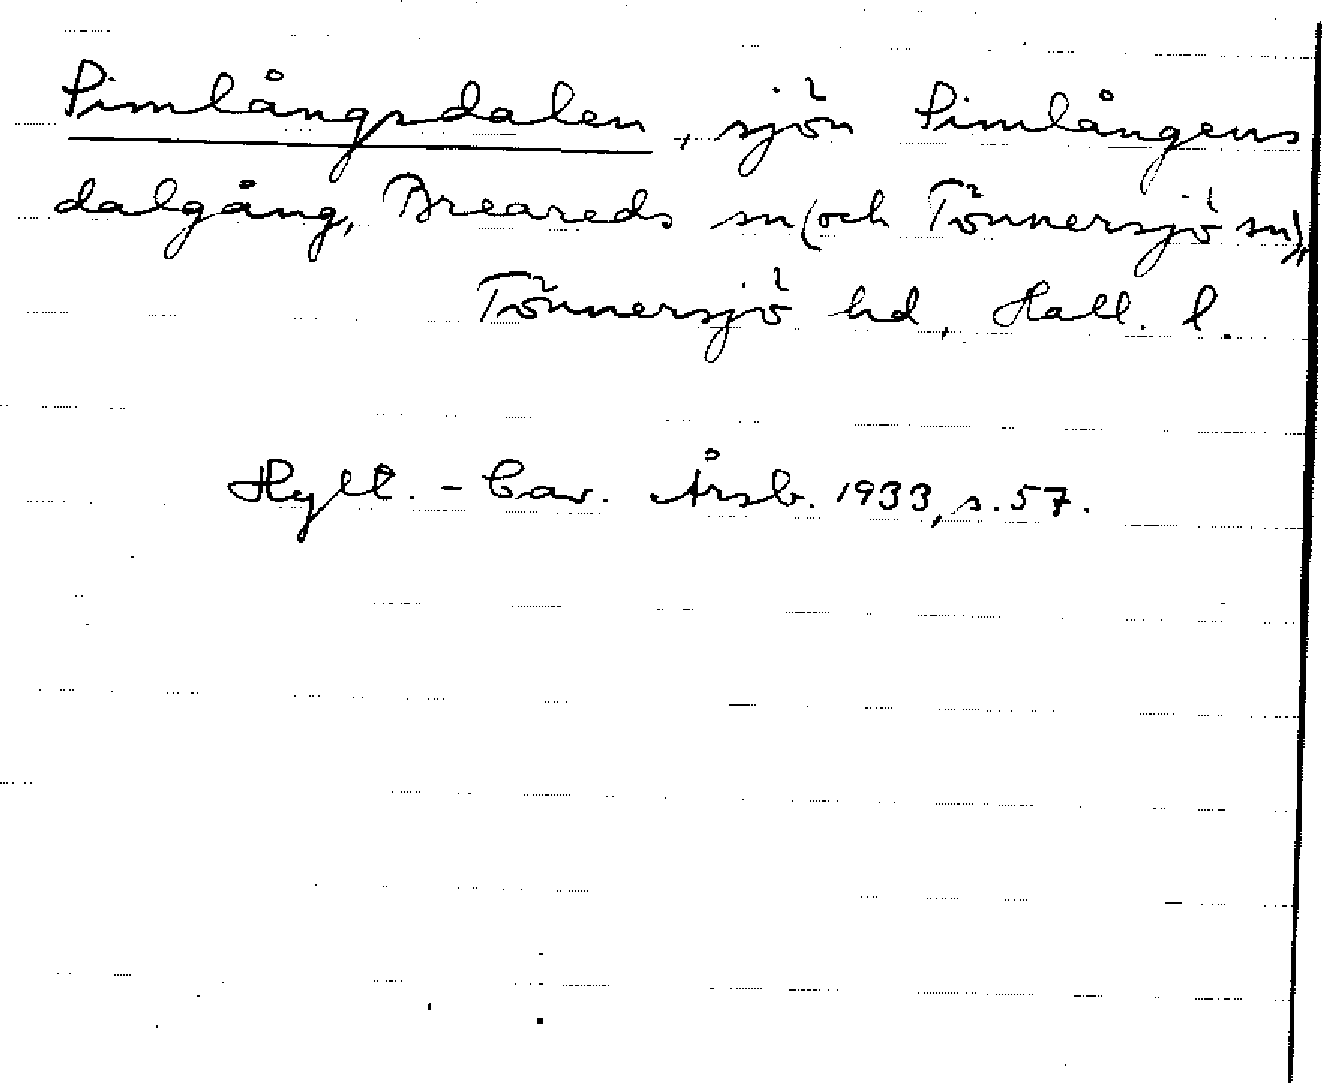 Simlångsdalen, sjön Simlångens
dalgång, Breareds sn (och Tönnersjö sn),
Tönnersjö hd, Hall. l.
Hylt.-Cav. Årsb. 1933, s. 57.